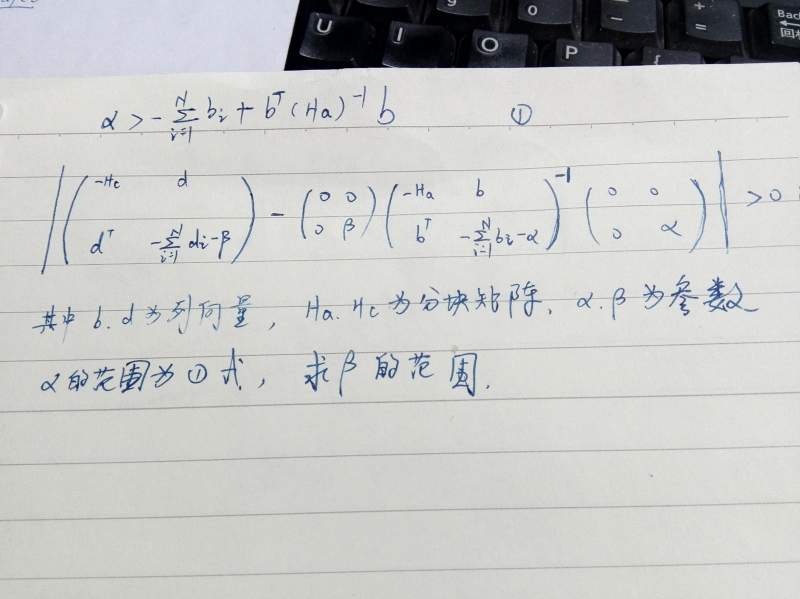 U I O P { Back
α > -∑_{i=1}^{N} b_i + b^T (Ha)^{-1} b ①
| ( -Hc d ; d^T -∑_{i=1}^{N} d_i - β ) - ( 0 0 ; 0 β ) ( -Ha b ; b^T -∑_{i=1}^{N} b_i - α )^{-1} ( 0 0 ; 0 α ) | > 0
其中 b. d 为列向量, Ha. Hc 为分块矩阵. α. β 为参数
α 的范围为 ① 式, 求 β 的范围.